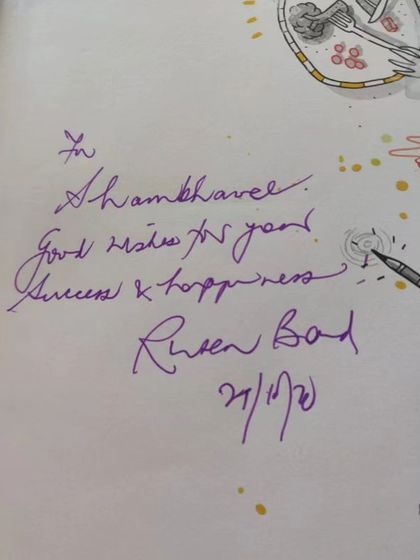 For
Shambhavee.
Good wishes for your
Success & happiness!
Ruskin Bond
29/10/20